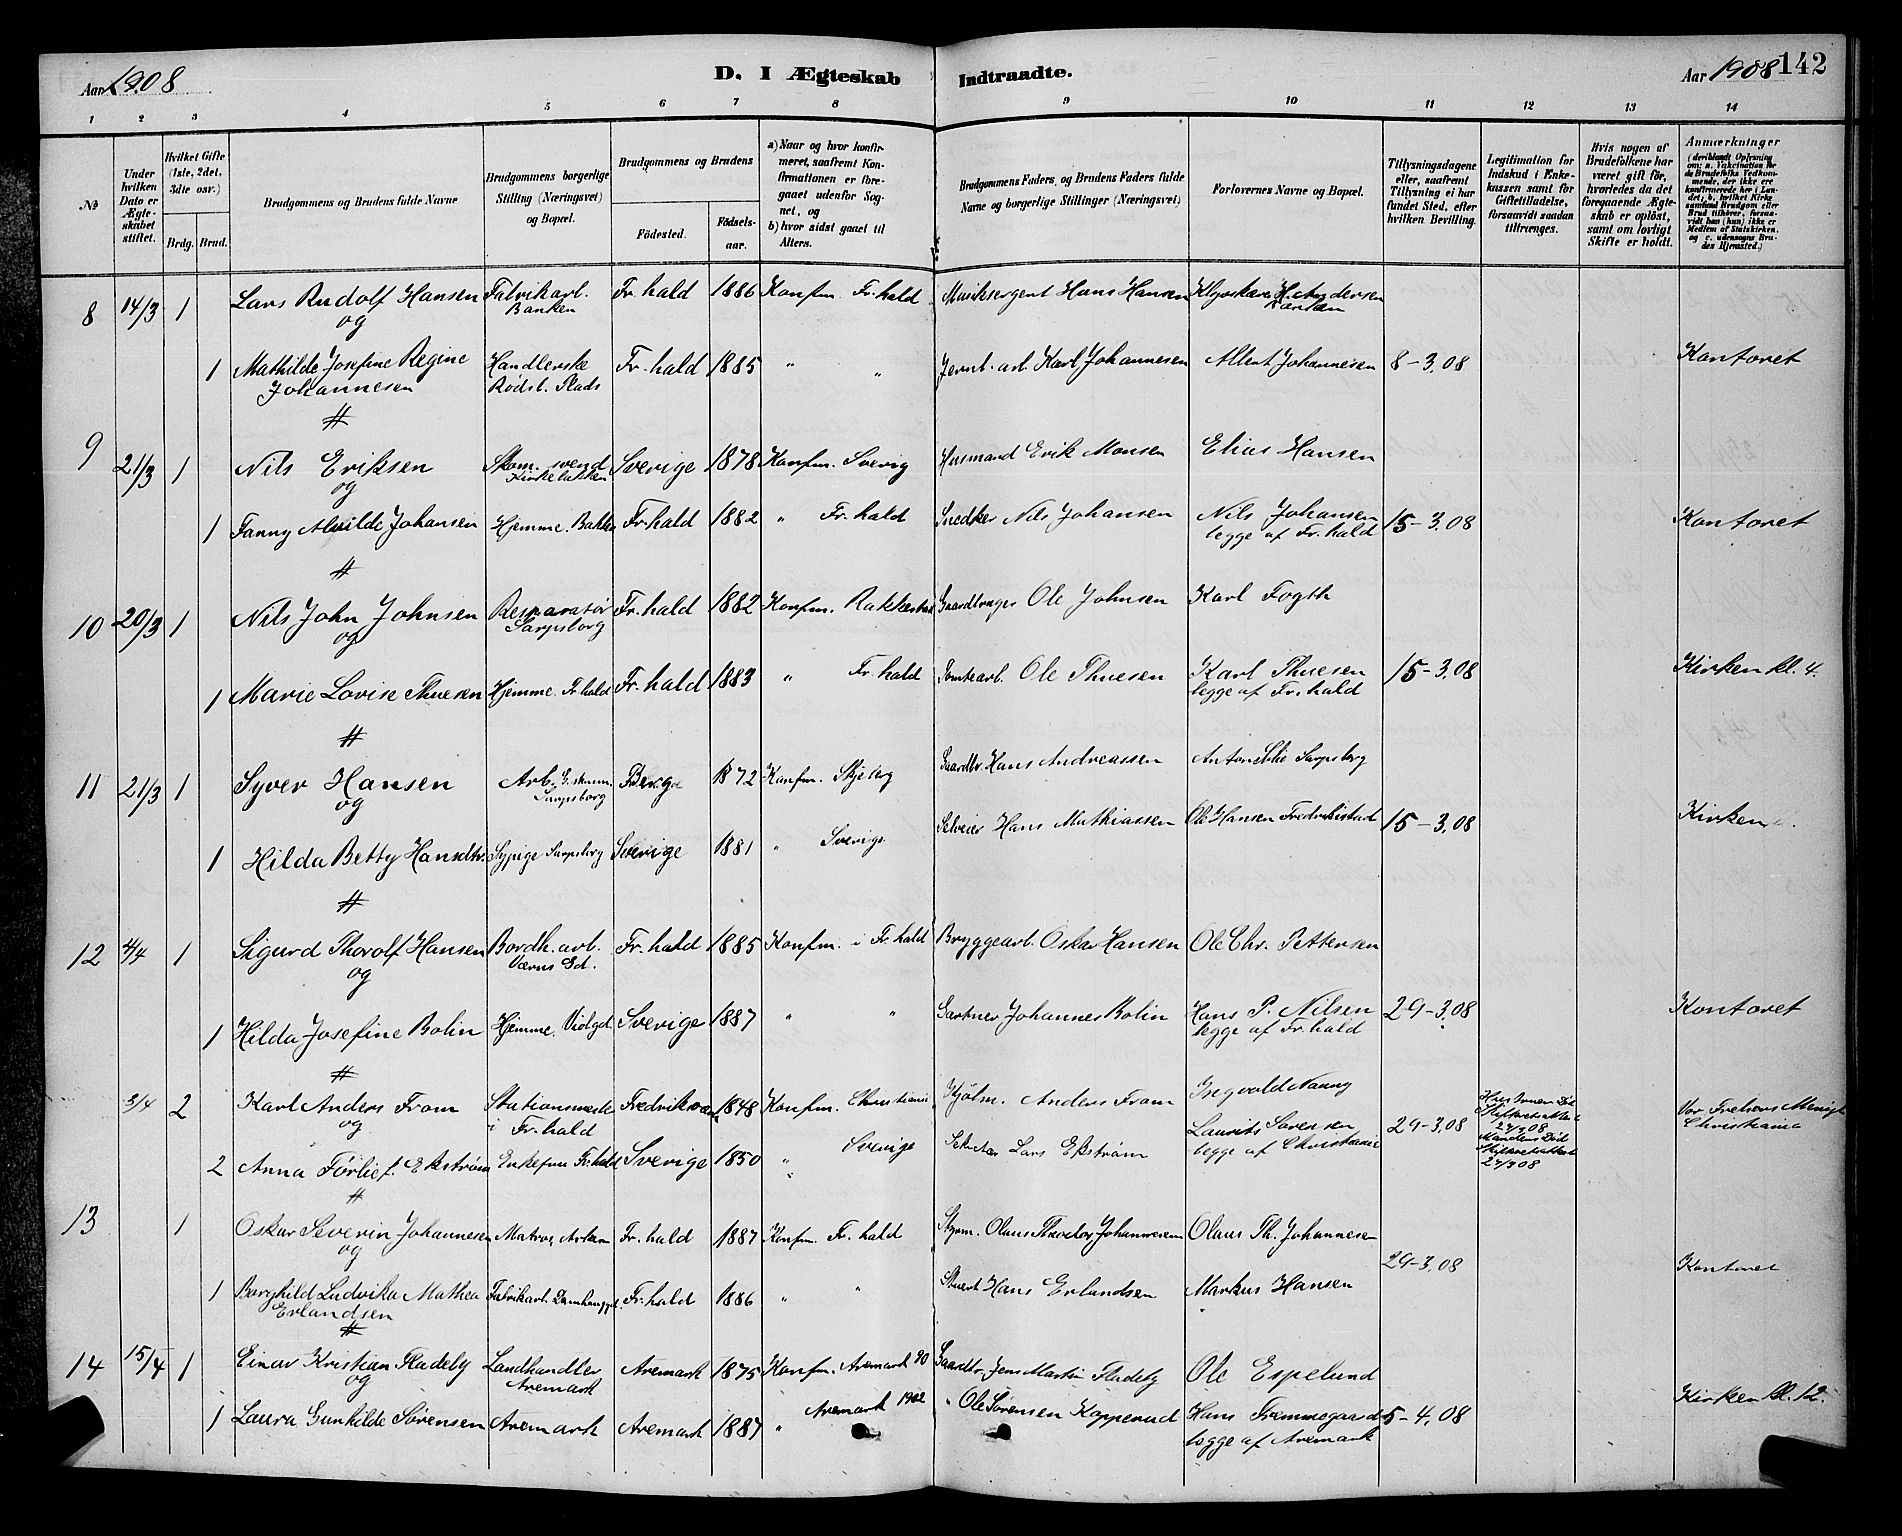 Aar 1908
D. I Ægteskab Indtraadte.
Aar 1908
142
1 2 3 4 5 6 7 8 9 10 11 12 13 14
№
Under hvilken Dato er Ægteskabet stiftet.
Hvilket Gifte (1ste, 2det, 3dte osv.)
Brdg. Brud.
Brudgommens og Brudens fulde Navne
Brudgommens borgerlige Stilling (Næringsvei) og Bopæl.
Brudgommens og Brudens
Fødested.
Fødselsaar.
a) Naar og hvor konfirmeret, saafremt Konfirmationen er foregaaet udenfor Sognet, og
b) hvor sidst gaaet til Alters.
Brudgommens Faders, og Brudens Faders fulde Navne og borgerlige Stillinger (Næringsvei)
Forlovernes Navne og Bopæl.
Tillysningsdagene eller, saafremt Tillysning ei har fundet Sted, efter hvilken Bevilling.
Legitimation for Indskud i Enkekassen samt for Giftetilladelse, forsaavidt saadan tiltrænges.
Hvis nogen af Brudefolkene har været gift før, hvorledes da det foregaaende Ægteskab er opløst, samt om lovligt Skifte er holdt.
Anmærkninger
(deriblandt Oplysning om: a. Vakcination for de Brudefolks Vedkommende, der ikke ere konfirmerede her i Landet; b. hvilket Kirkesamfund Brudgom eller Brud tilhører, forsaavidt han (hun) ikke er Medlem af Statskirken, og c. udensogns Brudes Hjemsted.)
8 14/3 1 Lars Rudolf Hansen Fabrikarb. Fr. hald 1886 Konfm. Fr. hald Musiksergent Hans Hansen
og Banken
1 Mathilde Josefine Regine Handlerske Fr. hald 1885 " " Jernb. arb. Karl Johannesen Albert Johannesen 8-3.08 Kontoret
Johannesen Rødsb. Plads
#
9 21/3 1 Nils Eriksen Skom. svend Sverige 1878 Konfm. Sverig Husmand Erik Monsen Elias Hansen
og
1 Fanny Alvilde Johansen Hjemme. Fr. hald 1882 " Fr. hald Snedker Nils Johansen Nils Johansen 15-3.08 Kontoret
begge af Fr. hald
#
10 20/3 1 Nils John Johnsen Reparatør Fr. hald 1882 Konfm. Ole Johnsen Karl Fogth
og Sarpsborg
1 Marie Lovise Thuesen Hjemme. Fr. hald Fr. hald 1883 " Fr. hald Tomtearb. Ole Thuesen Karl Thuesen 15-3.08 Kirken kl. 4.
begge af Fr. hald
#
11 21/3 1 Syver Hansen Arb. Berg 1872 Konfm. Skjeberg Gaardbr. Hans Andreassen Sarpsborg
og Sarpsborg
1 Hilda Betty Hansdtr. Sypige Sarpsborg Sverige 1881 " Sverige Selveier Hans Mathiassen Ole Hansen Fredrikstad 15-3.08 Kirken
#
12 4/4 1 Sigurd Thorolf Hansen Bordh. arb. Fr. hald 1885 Konfm. i Fr. hald Bryggearb. Oskar Hansen Ole Chr. Pettersen
og Værns Gd.
1 Hilda Josefine Bolin Hjemme. Sverige 1887 " " Gartner Johannes Bolin Hans P. Nilsen 29-3.08 Kontoret
begge af Fr. hald
#
3/4 2 Karl Anders Fram 1848 Konfm. Christiania Anders Fram
og i Fr. hald Laurits Sørensen 29-3.08 Vor Frelsers Menigh. Christiania
2 Anna Ekstrøm Enkefru Fr. hald Sverige 1850 " Sverige Lars Ekstrøm begge af Christiania
27/3 08
27/3 08
#
13 1 Oskar Severin Johannesen Matros, Fr. hald 1887 Konfm. Fr. hald Styrm. Olaus Theodor Johannesen Olaus Th. Johannesen
og 29-3.08 Kontoret
1 Borghild Ludvika Mathea Fabrikarb. Fr. hald 1886 " " Stuert Hans Erlandsen Markus Hansen
Erlandsen
#
14 15/4 1 Einar Kristian Fladeby Landhandler Aremark 1875 Konfm. Aremark 90 Gaardbr. Jens Martin Fladeby Ole Espelund
og Aremark
1 Laura Gunhilde Sørensen Aremark Aremark 1887 " Aremark 1902 " Ole Sørensen Kopperud Hans Fremmegaard 5-4.08 Kirken kl. 12.
begge af Aremark